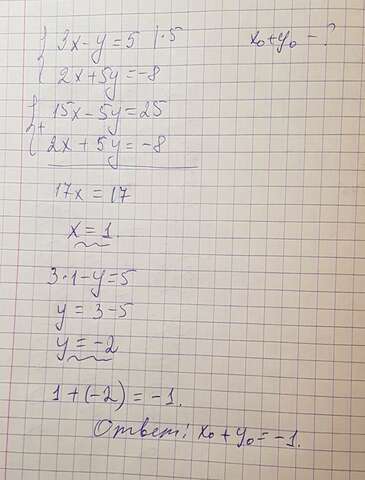 3x-y=5 |·5 x₀+y₀-?
2x+5y=-8
15x-5y=25
+
2x+5y=-8
17x=17
x=1.
3·1-y=5
y=3-5
y=-2
1+(-2)=-1.
Ответ: x₀+y₀=-1.